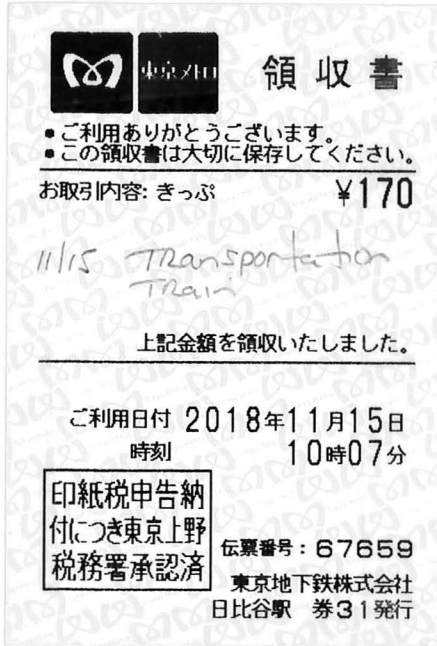 東京メトロ
領収書
● ご利用ありがとうございます。
● この領収書は大切に保存してください。
お取引内容: きっぷ ¥170
11/15 Transportation
Train
上記金額を領収いたしました。
ご利用日付 2018年11月15日
時刻 10時07分
印紙税申告納
付につき東京上野
税務署承認済
伝票番号：67659
東京地下鉄株式会社
日比谷駅 券31発行